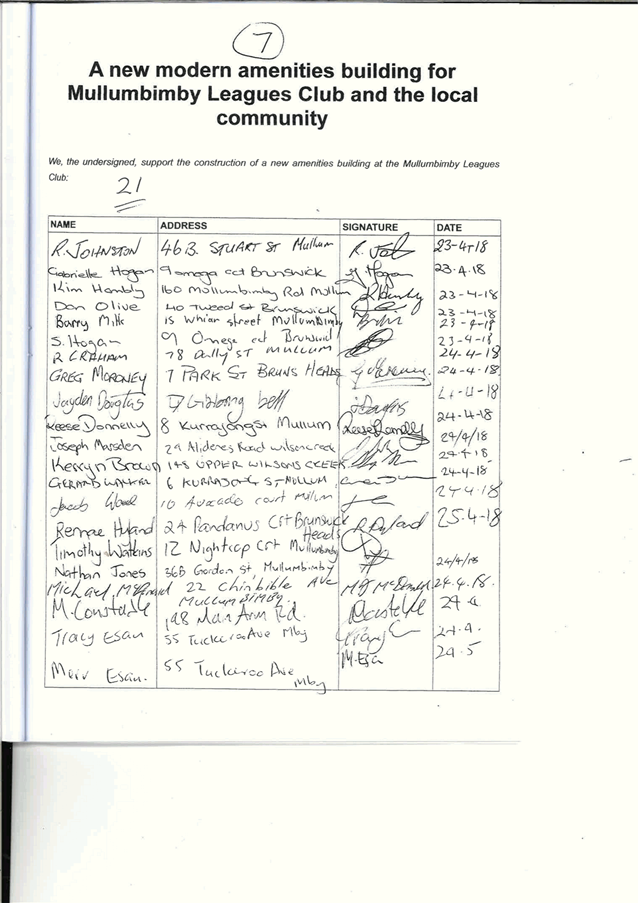 7
A new modern amenities building for
Mullumbimby Leagues Club and the local
community
We, the undersigned, support the construction of a new amenities building at the Mullumbimby Leagues
Club:
21
NAME ADDRESS SIGNATURE DATE
R. JOHNSTON 46B. STUART ST Mullum R. 23-4-18
Gabrielle Hogan 9 omega cct Brunswick Hogan 23.4.18
Kim Hambly 160 Mullumbimby Rd Mullum K Hambly 23-4-18
Don Olive 40 Tweed St Brunswick 23-4-18
Barry 15 street Mullumbimby 23-4-18
S. Hogan 9 Omega cct Brunswick 23-4-18
R GRAHAM 78 Dally ST MULLUM 24-4-18
GREG MORONEY 7 PARK ST BRUNS HEADS 24-4-18
Jayden Douglas -4-18
Reese Donnelly 8 Kurrajong st Mullum Reese Donnelly 24-4-18
Joseph Marsden 29 Road 24/4/18
Kerryn Brown 148 UPPER WILSONS CREEK 24-4-18
GERARD 6 KURRAJONG ST MULLUM 24-4-18
Jacob Wood 10 Avocado court Mullum 24-4-18
Renae Hyland 24 Pandanus Crt Brunswick Heads R Hyland 25.4-18
Timothy Watkins 12 Nightcap Crt Mullumbimby
Nathan Jones 36B Gordon St Mullumbimby 24/4/18
Michael McDonald 22 Chinbible Ave MULLUMBIMBY. M McDonald 24.4.18.
M. Constable 198 Main Arm Rd. 24.4
Tracy Esan 55 Tuckeroo Ave Mby 24.4.
Merv Esan. 55 Tuckeroo Ave Mby M. Esan 24.5